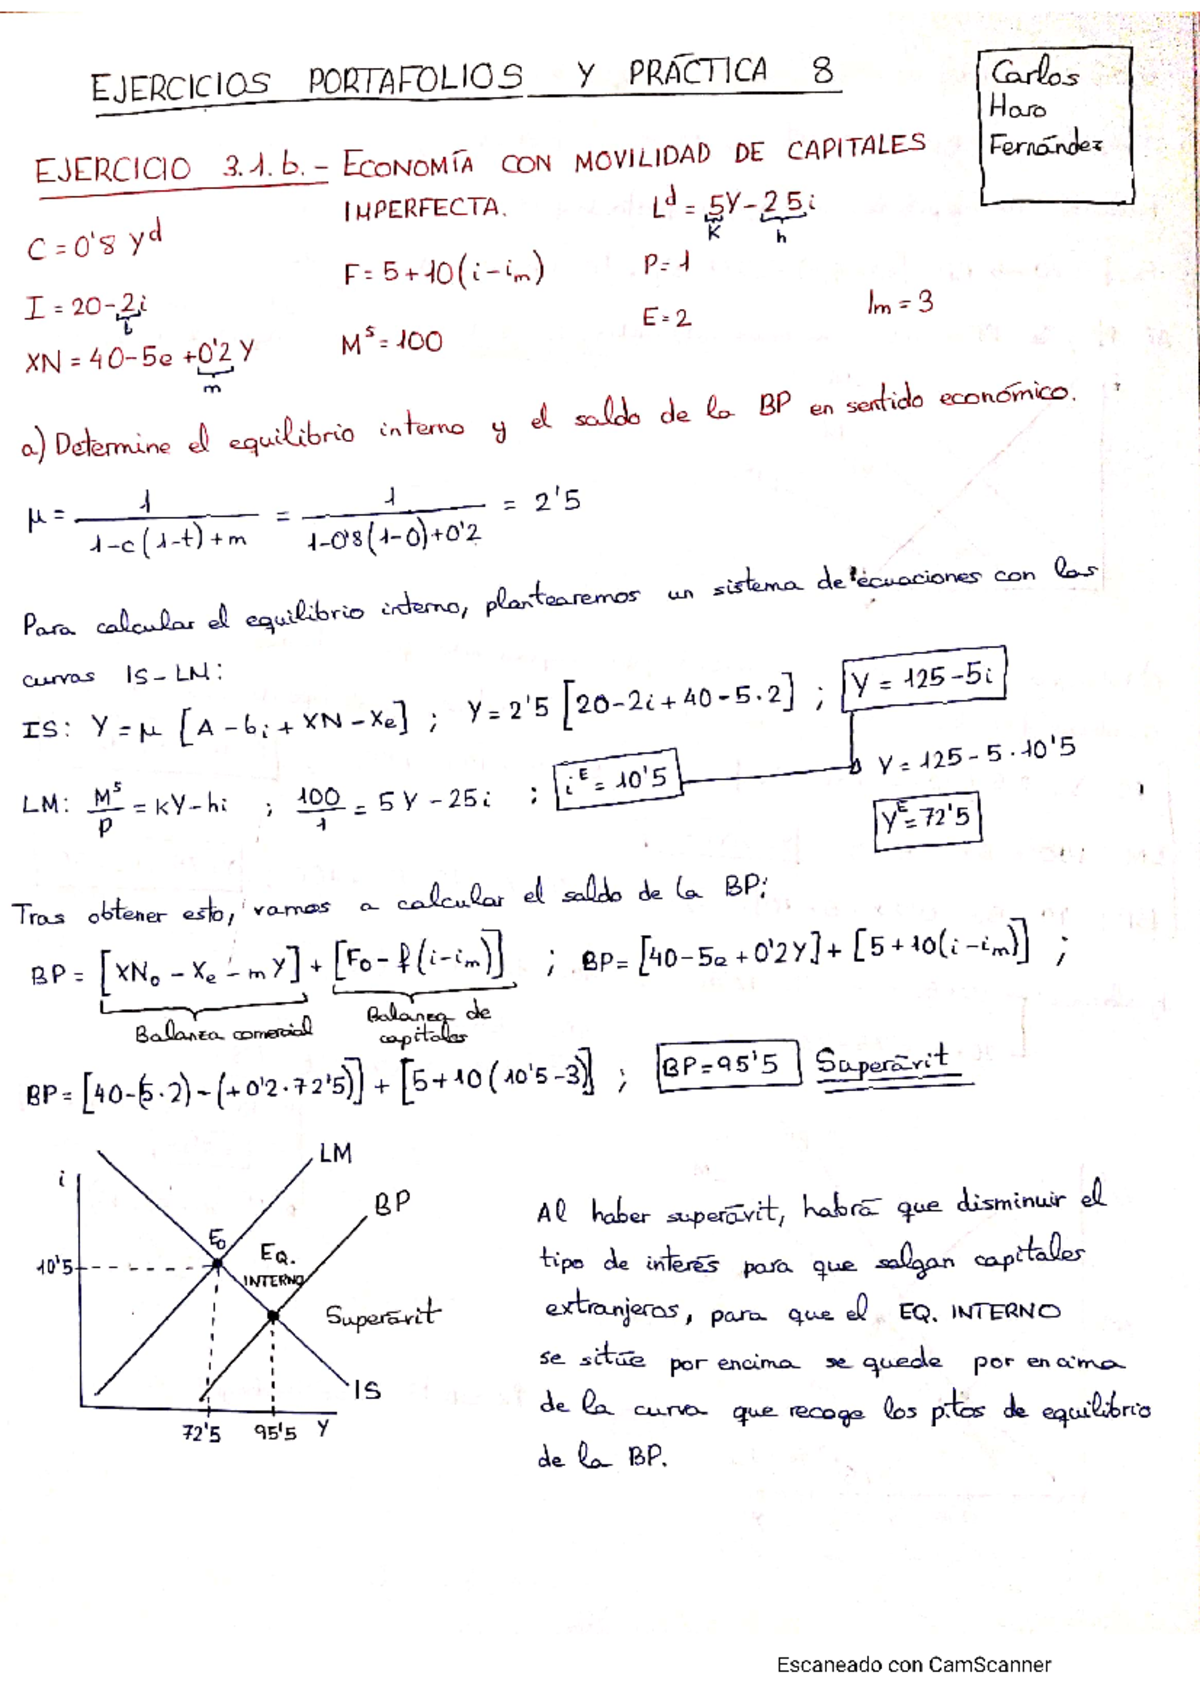 EJERCICIOS PORTAFOLIOS Y PRÁCTICA 8
Carlos
Haro
Fernández
EJERCICIO 3.1.b.- ECONOMÍA CON MOVILIDAD DE CAPITALES
IMPERFECTA.
C = 0'8 yd
F = 5+10(i-im)
Ld = 5Y-25i
K h
I = 20-2i
b
P = 1
E = 2
Im = 3
XN = 40-5e +0'2 Y
m
Ms = 100
a) Determine el equilibrio interno y el saldo de la BP en sentido económico.
μ = 1 / 1-c(1-t)+m = 1 / 1-0'8(1-0)+0'2 = 2'5
Para calcular el equilibrio interno, plantearemos un sistema de ecuaciones con las
curvas IS-LM:
IS: Y = μ [A - bi + XN - Xe] ; Y = 2'5 [20-2i+40-5·2] ; Y = 125-5i
LM: Ms/P = kY-hi ; 100/1 = 5Y-25i ; iE = 10'5
Y = 125-5·10'5
YE = 72'5
Tras obtener esto, vamos a calcular el saldo de la BP:
BP = [XNo - Xe - mY] + [Fo - f(i-im)] ; BP = [40-5e+0'2Y] + [5+10(i-im)] ;
Balanza comercial Balanza de
capitales
BP = [40-(5·2)-(+0'2·72'5)] + [5+10(10'5-3)] ; BP = 95'5 Superávit
LM
i
BP
E0
EQ.
INTERNO
10'5
Superávit
IS
72'5 95'5 Y
Al haber superávit, habrá que disminuir el
tipo de interés para que salgan capitales
extranjeros, para que el EQ. INTERNO
se sitúe por encima se quede por encima
de la curva que recoge los ptos de equilibrio
de la BP.
Escaneado con CamScanner